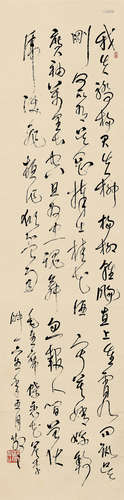 我失骄杨君失柳杨柳轻飏直上重霄九问讯吴
刚何所有吴刚捧出桂花酒寂寞嫦娥舒
广袖万里长空且为忠魂舞忽报人间曾伏
虎泪飞顿作倾盆雨毛主席蝶恋花答李
年五月